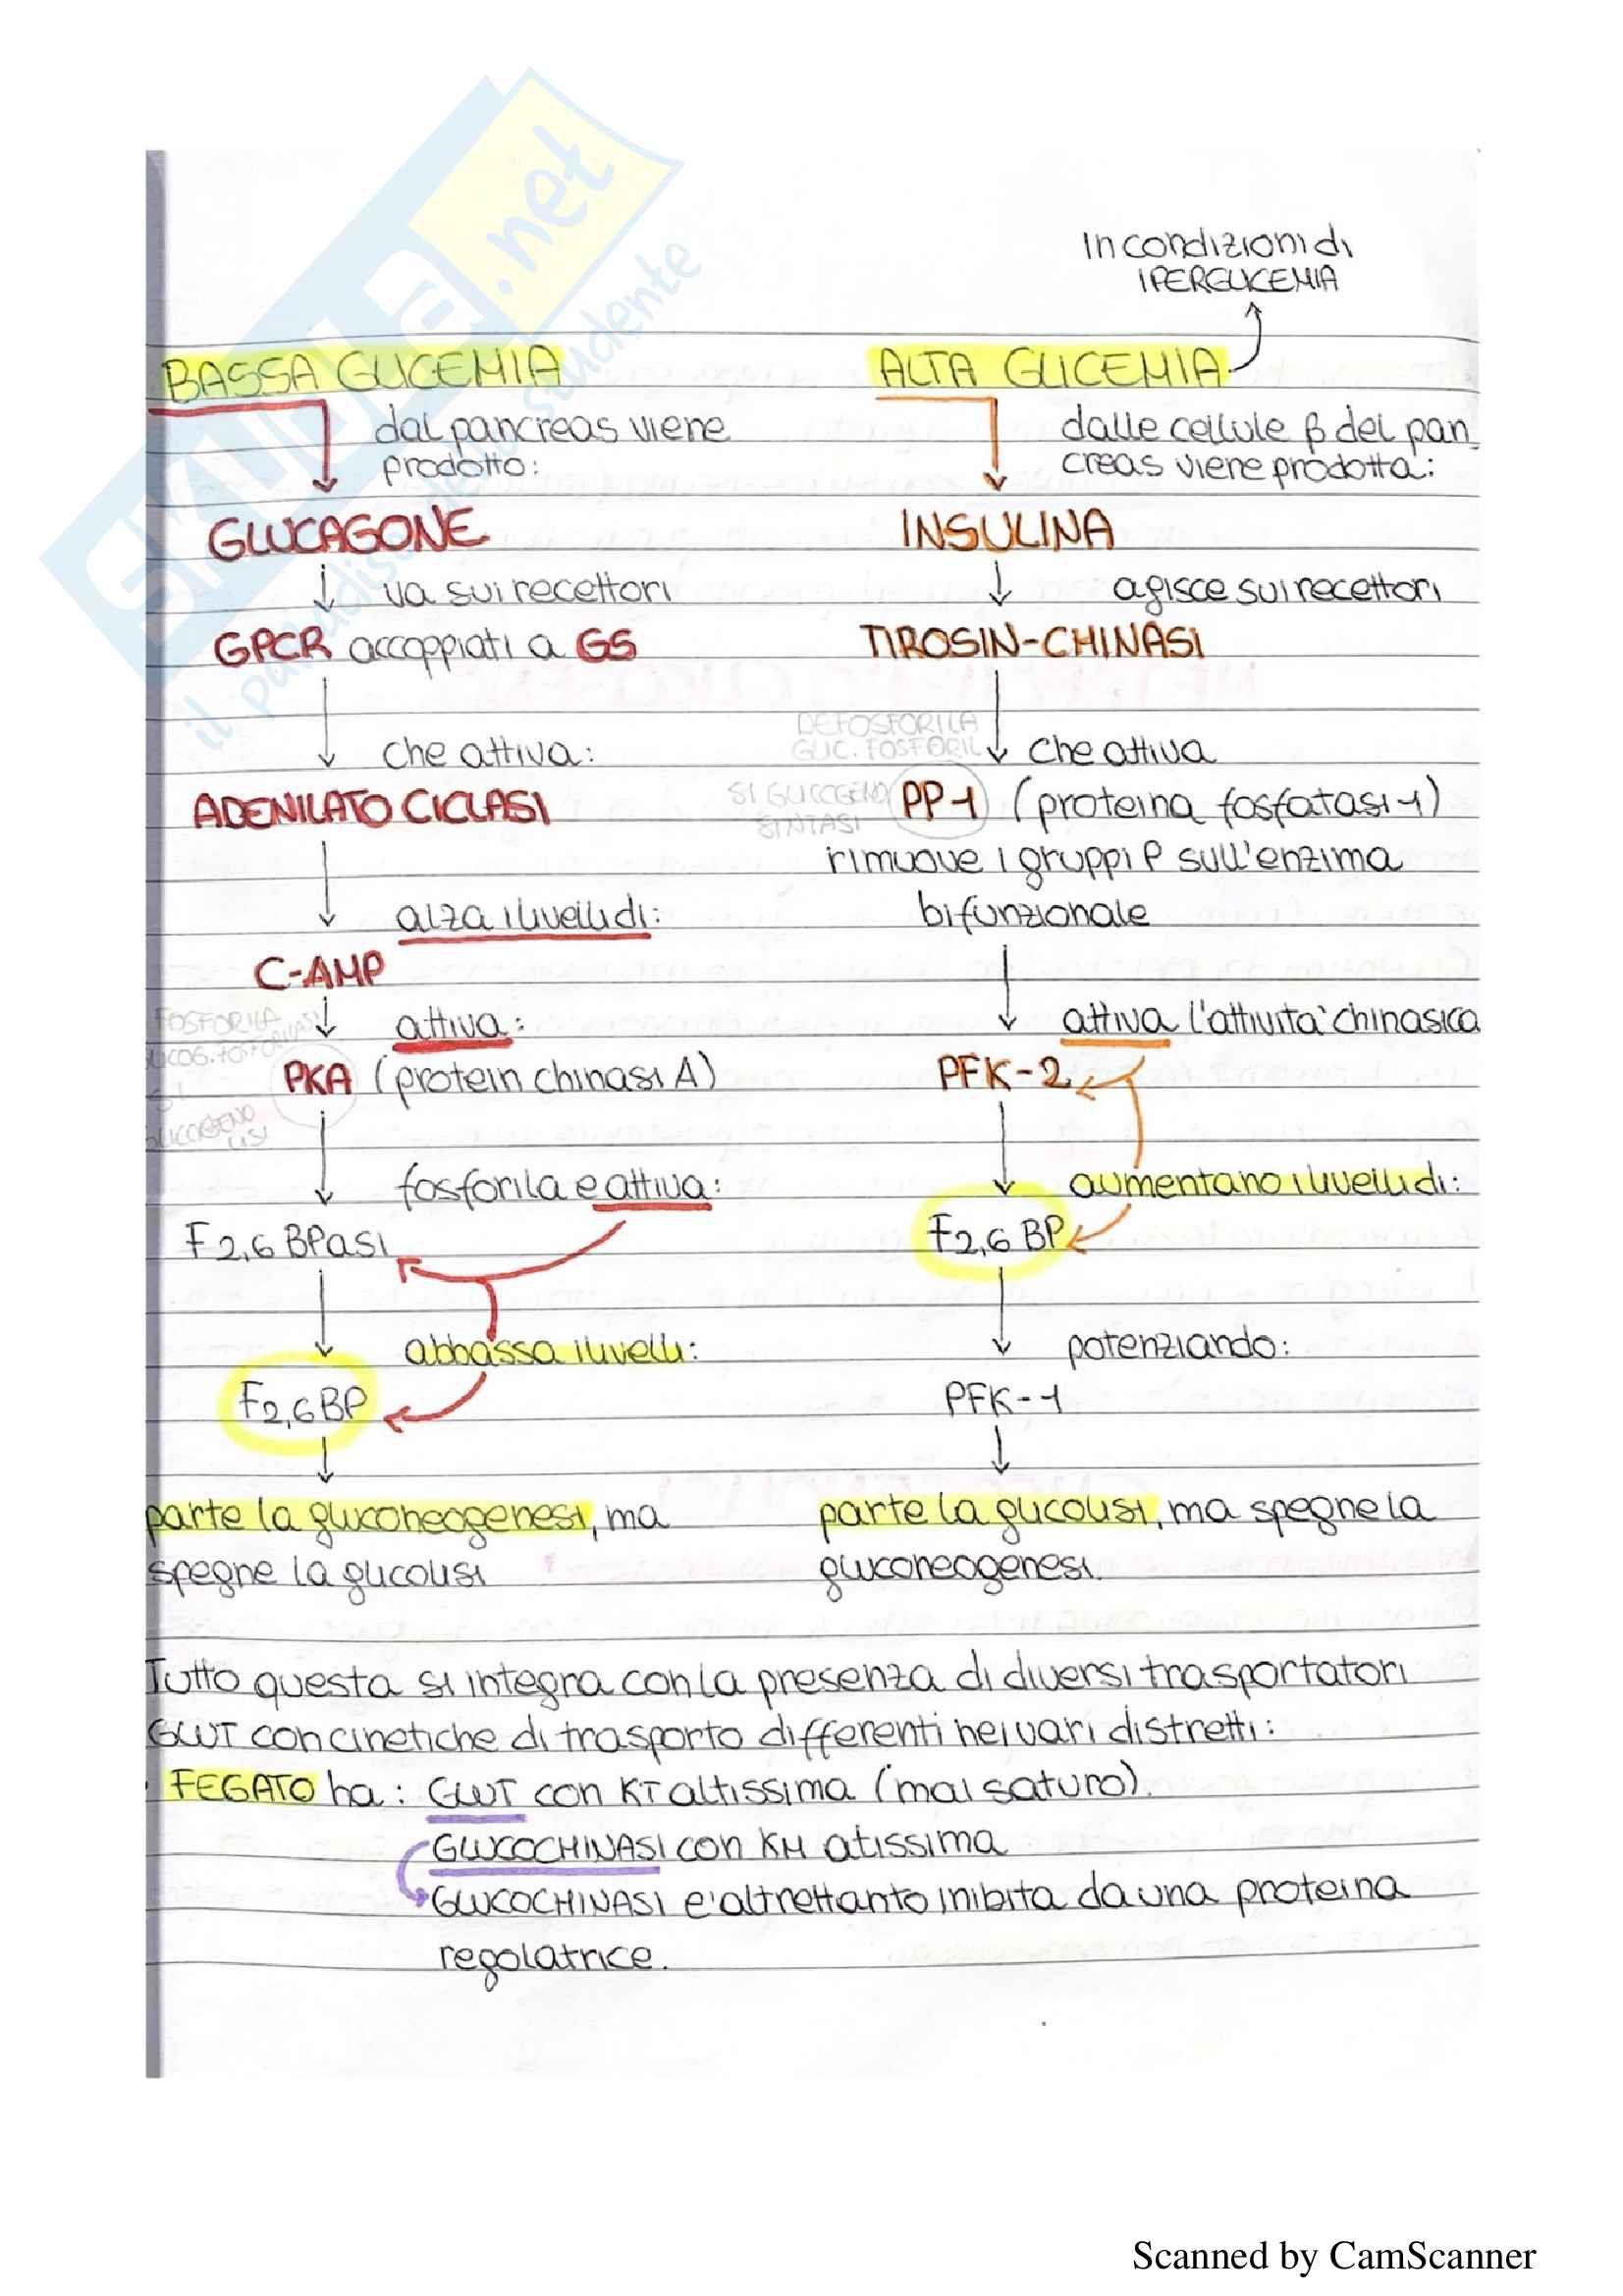 SKUOLA.net
il paradiso dello studente
In condizioni di
IPERGLICEMIA
BASSA GLICEMIA
dal pancreas viene
prodotto:
GLUCAGONE
va sui recettori
GPCR accoppiati a GS
che attiva:
ADENILATO CICLASI
alza i livelli di:
C-AMP
FOSFORILA
attiva:
PKA (protein chinasi A)
fosforila e attiva:
F2,6 BPasi
abbassa i livelli:
F2,6 BP
parte la gluconeogenesi, ma
spegne la glicolisi
ALTA GLICEMIA
dalle cellule β del pan
creas viene prodotta:
INSULINA
agisce sui recettori
TIROSIN-CHINASI
DEFOSFORILA
GLIC. FOSFORIL
che attiva
SI GLICOGENO
SINTASI
PP-1 (proteina fosfatasi-1)
rimuove i gruppi P sull'enzima
bifunzionale
attiva l'attività chinasica
PFK-2
aumentano i livelli di:
F2,6 BP
potenziando:
PFK-1
parte la glicolisi, ma spegne la
gluconeogenesi.
Tutto questa si integra con la presenza di diversi trasportatori
GLUT con cinetiche di trasporto differenti nei vari distretti:
· FEGATO ha: GLUT con KT altissima (mai saturo).
GLUCOCHINASI con KM atissima
GLUCOCHINASI e' altrettanto inibita da una proteina
regolatrice.
Scanned by CamScanner